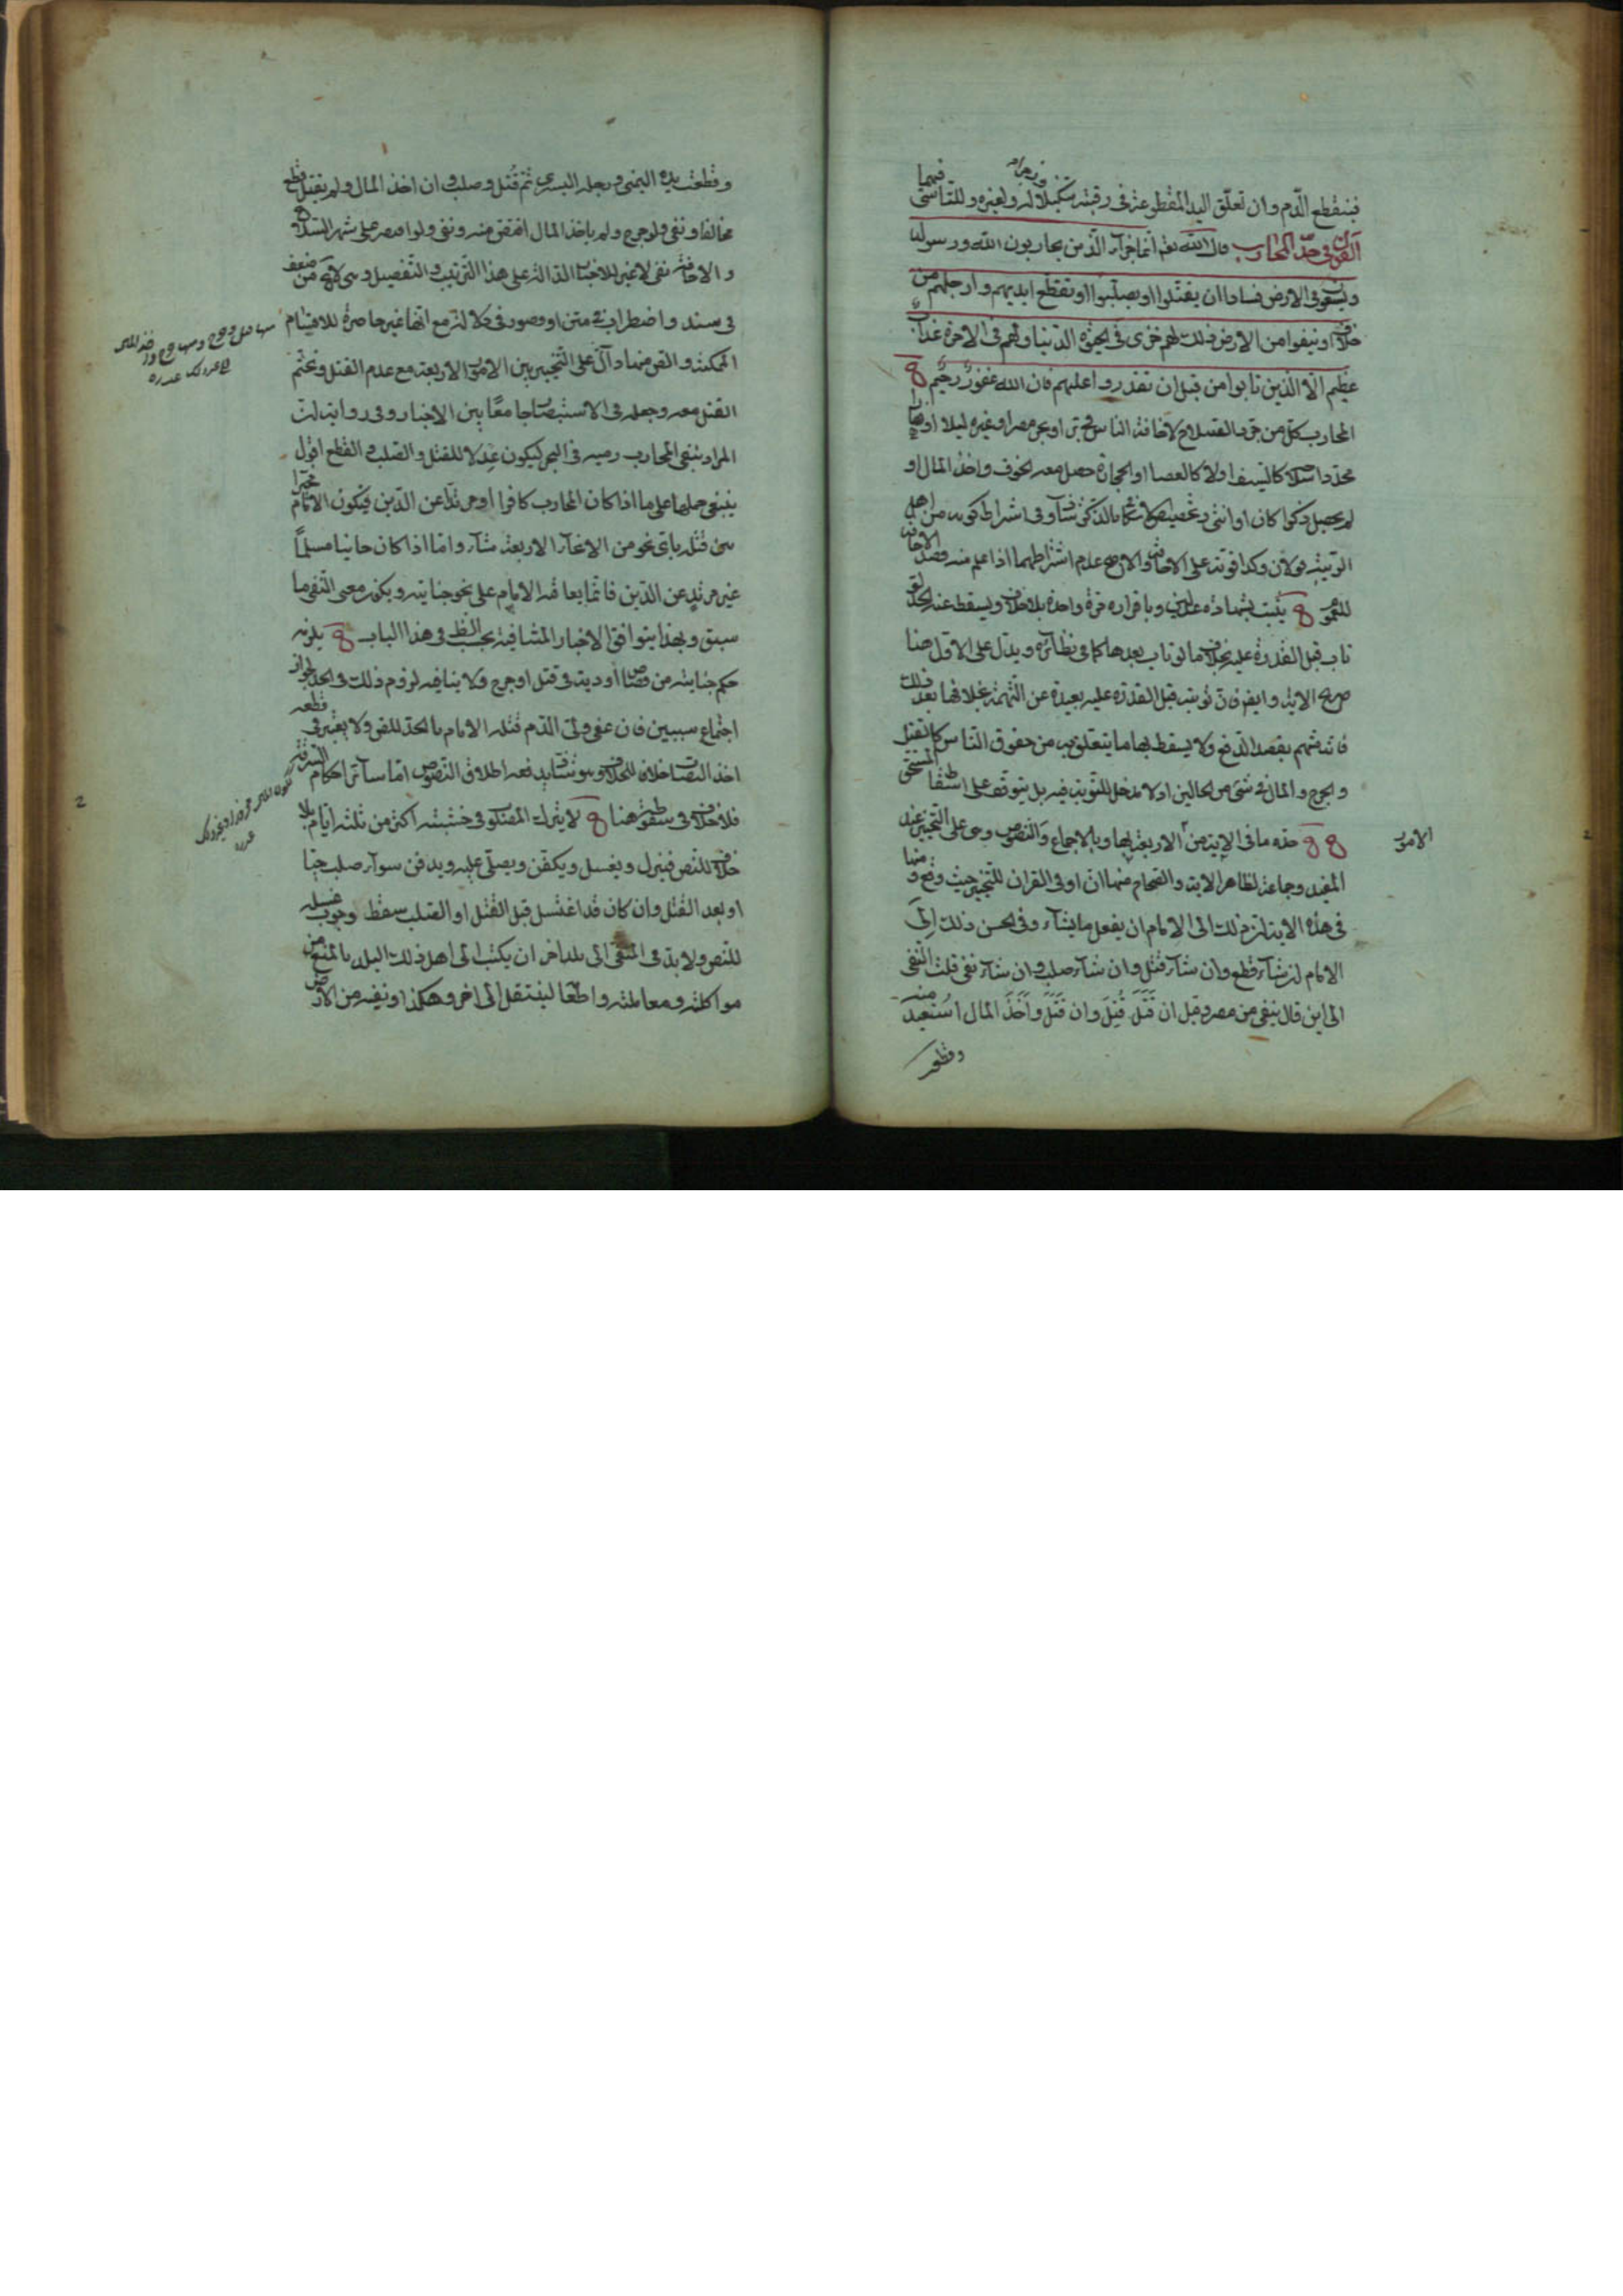 فينقطع الدّم وان تعلّق اليد المقطوعة فى رقبته تنكيلا له ولغيره وللتاسّى فيهما
القول فى حدّ المحارب قال الله تعم انما جزآء الذين يحاربون الله ورسوله
ويسعون فى الارض فسادا ان يقتّلوا او يصلّبوا او تقطع ايديهم وارجلهم من
خلاف او ينفوا من الارض ذلك لهم خزى فى الحيوة الدنيا ولهم فى الاخرة عذاب
عظيم الّا الذين تابوا من قبل ان تقدروا عليهم فان الله غفور رحيم
المحارب كل من جرد السلاح لاخافة الناس فى برّ او بحر مصر او غيره ليلا او نهارا
محدّدا كالسيف او لا كالعصا او الحجارة حصل معه الخوف واخذ المال او
لم يحصل ذكرا كان او انثى وفى اشتراط كونه من اهل
الريبة قولان وكذا قوته على الاخافة والاصح عدم اشتراطهما اذا علم منه قصد الاخافة
للعموم يثبت بشهادة عدلين وباقراره مرّة واحدة بلا خلاف ويسقط عنه الحد لو
تاب قبل القدرة عليه بخلاف ما لو تاب بعدها كما فى نظائره ويدلّ على الاوّل هنا
صريح الاية وايضم فان توبته قبل القدرة عليه بعيدة عن التهمة بخلافها بعد ذلك
فانه متهم بقصد الدفع ولا يسقط بها ما يتعلق به من حقوق الناس كالقتل
والجرح والمال فى شئ من الحالين اذ لا مدخل للتوبة فيه بل يتوقف على اسقاط المستحق
حدّه ما فى الاية من الاربعة بها وبالاجماع والنصوص وهى على التخيير عند
الامور
المفيد وجماعة لظاهر الاية والصحاح منها ان او فى القران للتخيير حيث وقع ومنها
فى هذه الاية لزم ذلك الى الامام ان يفعل ما يشآء وفى الحسن ذلك الى
الامام ان شآء قطع وان شآء قتل وان شآء صلب وان شآء نفى قلت النفى
الى اين قال ينفى من مصر وقيل ان قَتَلَ قُتِلَ وان قَتَلَ واَخَذَ المال استُعيد منه
وقطعت
وقطعت يده اليمنى ورجله اليسرى ثم قُتل وصلب وان اخذ المال ولم يقتل قطع
مخالفا ونفى ولو جرح ولم ياخذ المال اقتصّ منه ونفى ولو اقتصر على شهر السلاح
والاخافة نفى لا غير للاخبار الدالّة على هذا الترتيب والتفصيل وهى لا تخ من ضعف
فى سند واضطراب فى متن او قصور فى دلالة مع انها غير حاصرة للاقسام
الممكنة والتخيير بين الامور الاربعة مع عدم القتل وتحتّم
القتل معه وجعله فى الاستبصار جامعًا بين الاخبار وفى رواية ان
المراد بنفى المحارب رميه فى البحر ليكون عِدلا للقتل والصلب والقطع اقول
ينبغى حملها على ما اذا كان المحارب كافرا او مرتدّا عن الدّين فيكون الامام مخيّرا
بين قتله باىّ نحو من الانحآء الاربعة شآء وامّا اذا كان جانيا مسلمًا
غير مرتد عن الدّين فانّما يعاقبه الامام على نحو جنايته ويكون معنى النفى ما
سبق وبهذا يتوافق الاخبار المتنافية بحسب الظ فى هذا الباب يلزمه
حكم جنايته من قصاص او دية فى قتل او جرح ولا ينافيه لزوم ذلك فى الحد لجواز
اجتماع سببين فان عفى ولىّ الدّم قتله الامام بالحدّ للنص ولا يعتبر فى قطعه
اخذ النصاب خلافا للخلاف وهو شاذ يدفعه اطلاق النصوص امّا سائر احكام السرقة
فلا خلاف فى سقوطه هنا لا يترك المصلوب فى خشبته اكثر من ثلثة ايّام بلا
خلاف للنص فينزل ويغسل ويكفن ويصلّى عليه ويدفن سوآء صلب حيّا
او بعد القتل وان كان قد اغتسل قبل القتل او الصلب سقط وجوب غسله
للنص ولا بدّ فى المنفى الى بلد اخر ان يكتب الى اهل ذلك البلد بالمنع من
مواكلته ومعاملته واطعامه لينتقل الى اخر وهكذا او نفيه من الارض